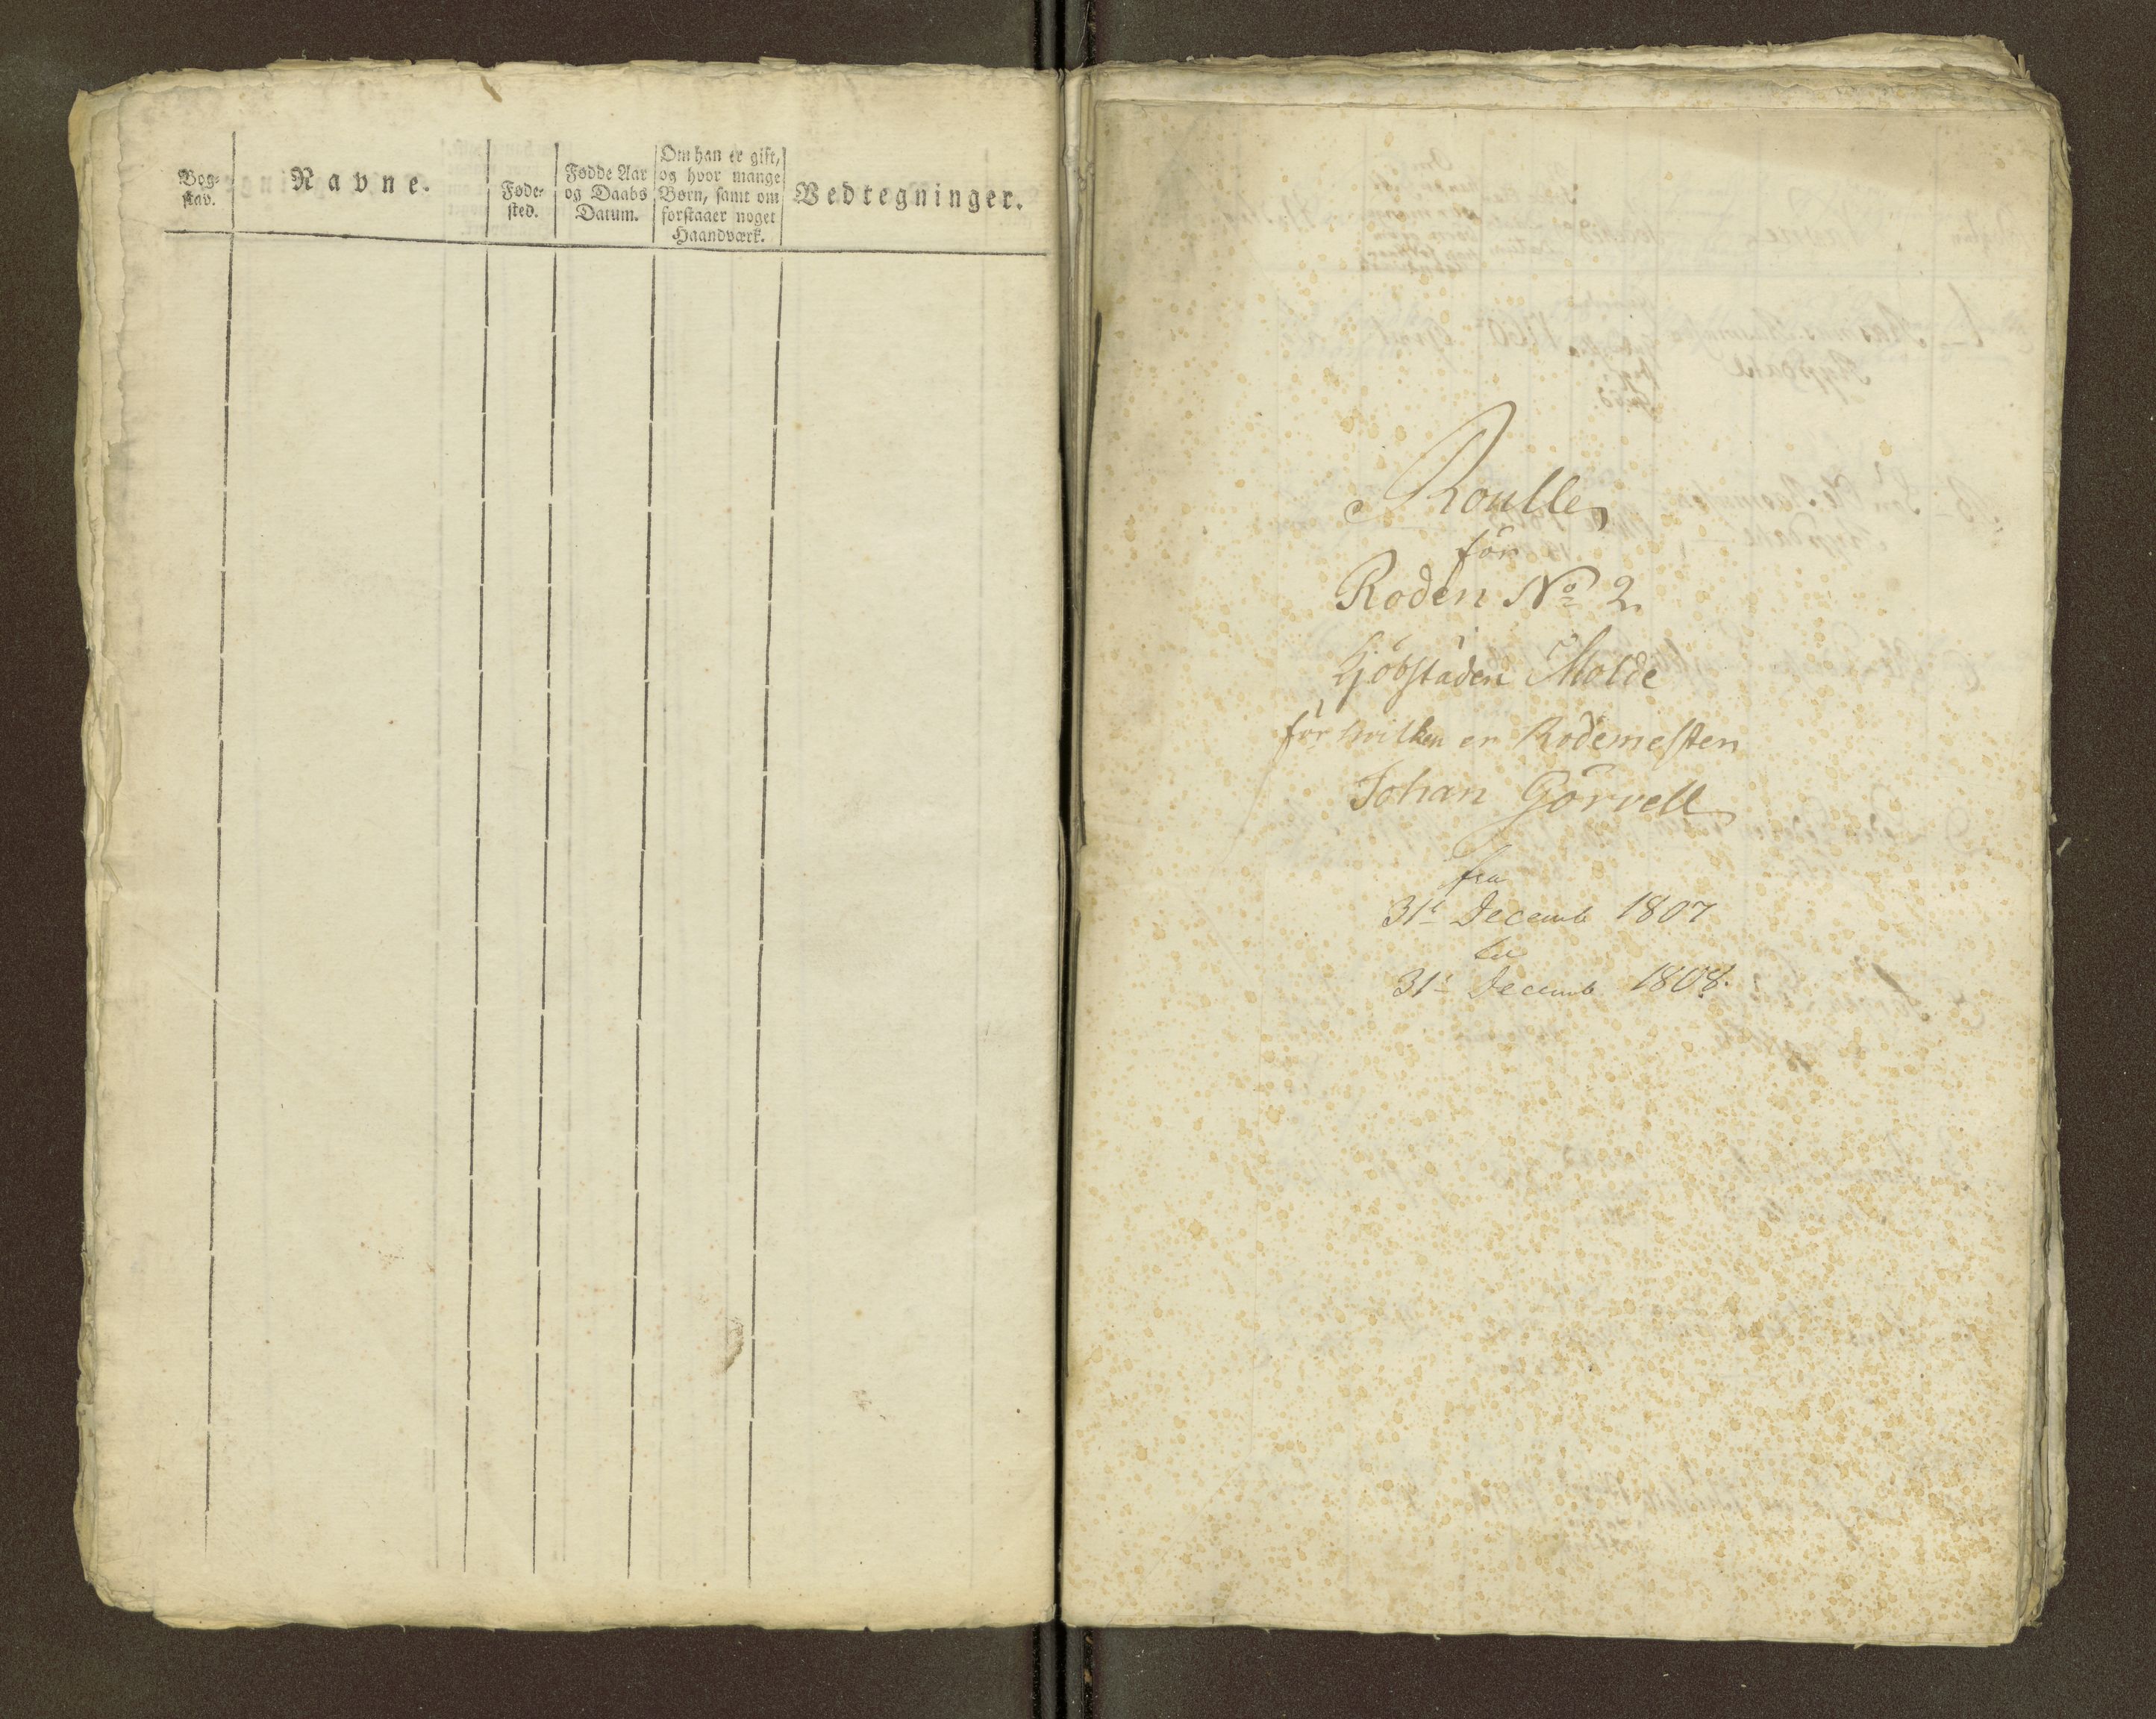 Bog-
stav.
Navne.
Føde-
sted.
Fødde Aar
og Daabs
Datum.
Om han er gift,
og hvor mange
Børn, samt om
forstaaer noget
Haandværk.
Vedtegninger.
Roulle
för
Roden No 2
Kjöbstaden Molde
för hvilken er Rodemesten
Johan Görvell
fra
31t Decemb 1807
til
31t Decemb 1808.